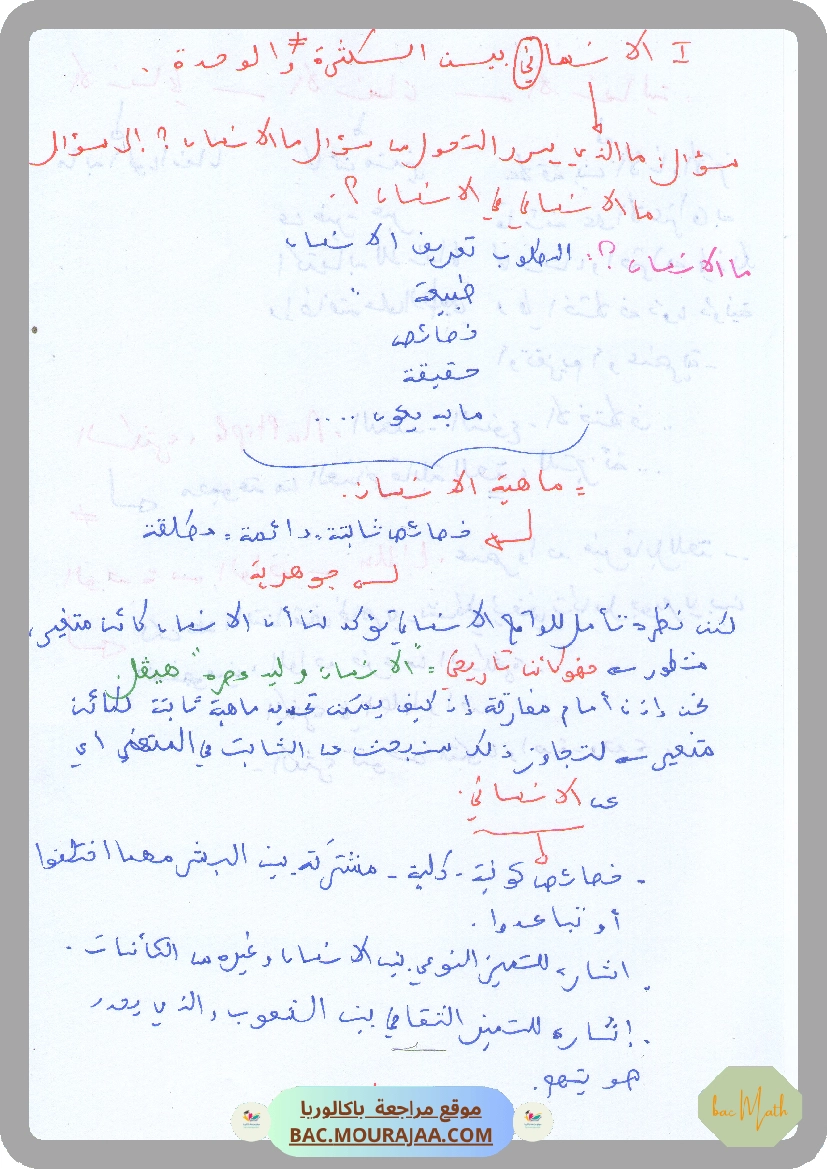 I الإنساني بين الكثرة ≠ والوحدة.
سؤال: ما الذي يبرر التحول من سؤال ما الإنسان؟ إلى سؤال
ما الإنساني في الإنسان؟.
ما الإنسان؟: المطلوب تعريف الإنسان
طبيعة :
خصائص
حقيقة
ما به يكون ....
= ماهية الإنسان.
↳ خصائص ثابتة، دائمة، مطلقة
↳ جوهرية
لكن نظرة تأمل للواقع الإنساني تؤكد لنا أن الإنسان كائن متغير،
متطور → فهو كائن تاريخي = "الإنسان وليد عصره" هيقل
نحن إذن أمام مفارقة إذ كيف يمكن تحديد ماهية ثابتة لكائن
متغير → لتجاوز ذلك سنبحث عن الثابت في المتغير أي
عن الإنساني.
- خصائص كونية - كلية - مشتركة بين البشر مهما اختلفوا
أو تباعدوا.
. إشارة للتميز النوعي بين الإنسان وغيره من الكائنات.
. إشارة للتميز الثقافي بين الشعوب، والذي يحدد
هويتهم.
موقع مراجعة باكالوريا
BAC.MOURAJAA.COM
bac Math